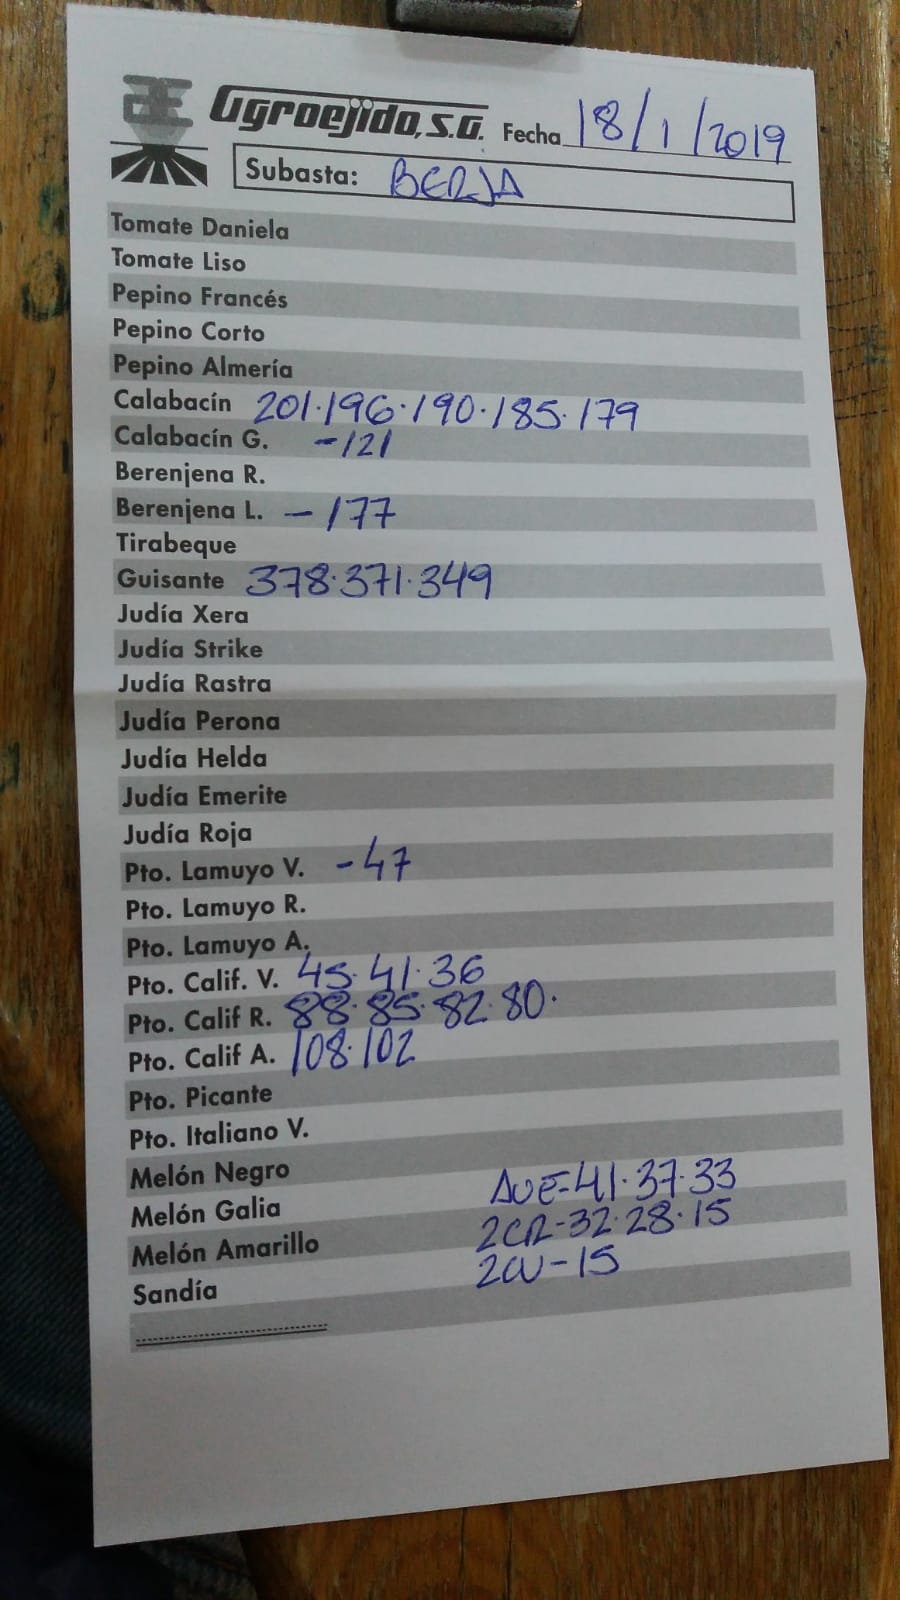 Agroejido, S.A. Fecha 18/1/2019
Subasta: BERJA
Tomate Daniela
Tomate Liso
Pepino Francés
Pepino Corto
Pepino Almería
Calabacín 201·196·190·185·179
Calabacín G. -121
Berenjena R.
Berenjena L. -177
Tirabeque
Guisante 378·371·349
Judía Xera
Judía Strike
Judía Rastra
Judía Perona
Judía Helda
Judía Emerite
Judía Roja
Pto. Lamuyo V. -47
Pto. Lamuyo R.
Pto. Lamuyo A.
Pto. Calif. V. 45·41·36
Pto. Calif R. 88·85·82·80·
Pto. Calif A. 108·102
Pto. Picante
Pto. Italiano V.
Melón Negro
Melón Galia AVE-41·37·33
Melón Amarillo 2CR-32·28·15
Sandía 2CV-15